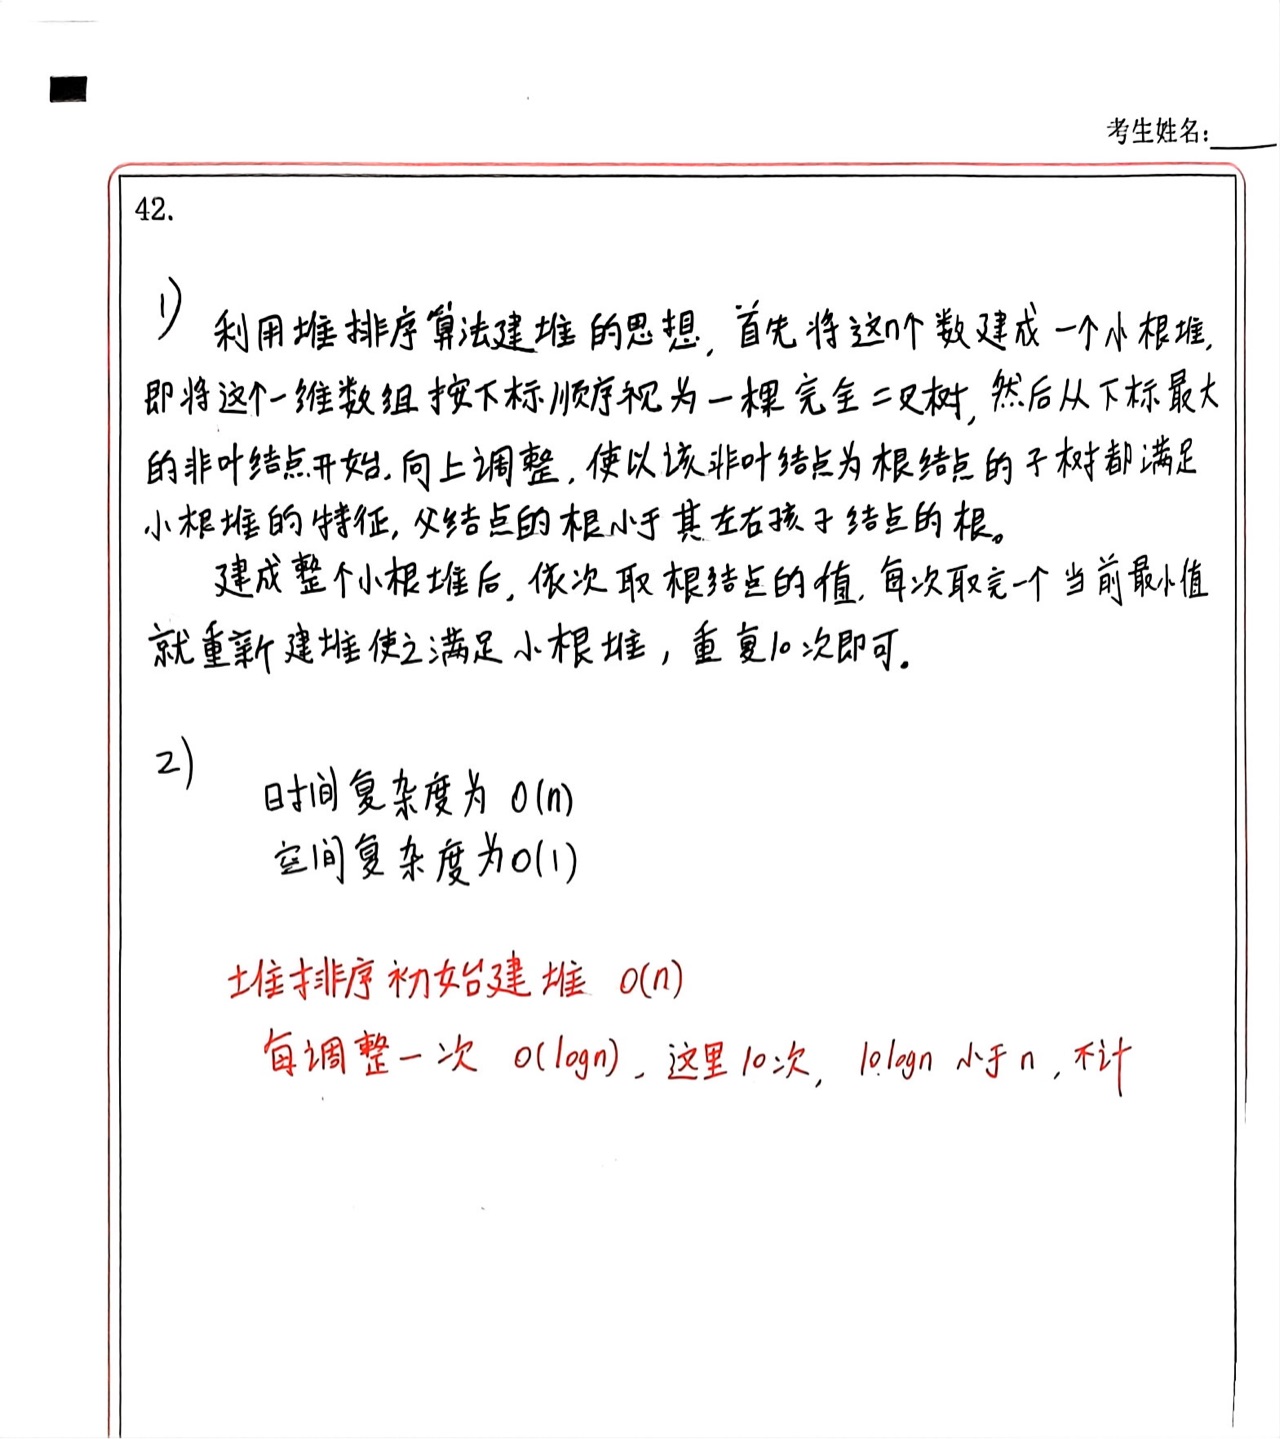 考生姓名:
42.
1) 利用堆排序算法建堆的思想, 首先将这n个数建成一个小根堆,
即将这个一维数组按下标顺序视为一棵完全二叉树, 然后从下标最大
的非叶结点开始, 向上调整, 使以该非叶结点为根结点的子树都满足
小根堆的特征, 父结点的根小于其左右孩子结点的根。
建成整个小根堆后, 依次取根结点的值, 每次取完一个当前最小值
就重新建堆使之满足小根堆, 重复10次即可。
2)
时间复杂度为 O(n)
空间复杂度为O(1)
堆排序初始建堆 O(n)
每调整一次 O(logn), 这里10次, 10logn 小于n, 不计